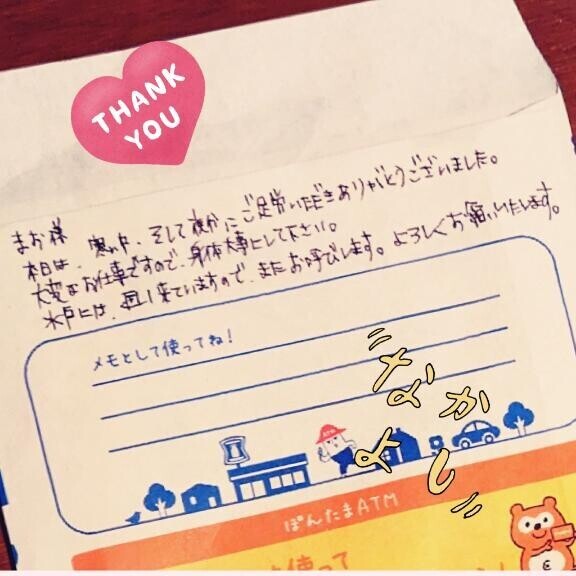 THANK
YOU
まお様
本日は、寒い中、そして夜分にご足労いただきありがとうございました。
大変なお仕事ですので、身体大事にして下さい。
水戸には、来ていますので、またお呼びします。よろしくお願いいたします。
メモとして使ってね!
なかよし
ATM
ぽんたまATM
使って